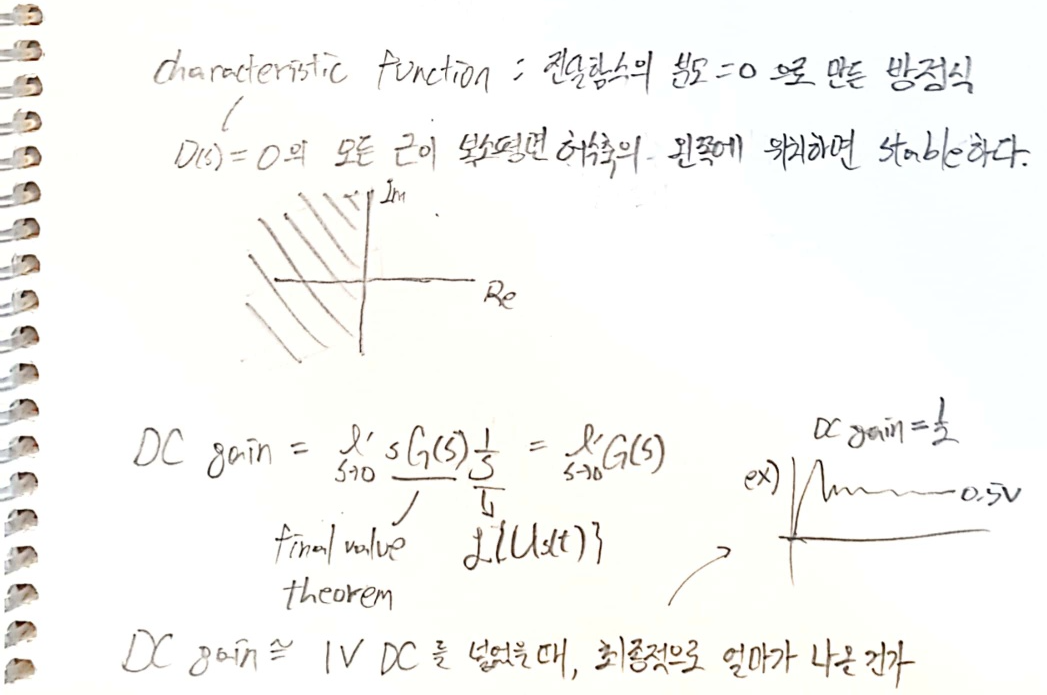 characteristic function : 전달함수의 분모=0 으로 만든 방정식
D(s)=0의 모든 근이 복소평면 허수축의 왼쪽에 위치하면 stable하다.
Im
Re
DC gain = li s→0 sG(s) 1/s = li s→0 G(s)
final value theorem
ℒ{Us(t)}
DC gain = 1/2
ex)
0.5V
DC gain ≅ 1V DC를 넣었을 때, 최종적으로 얼마가 나올 건가